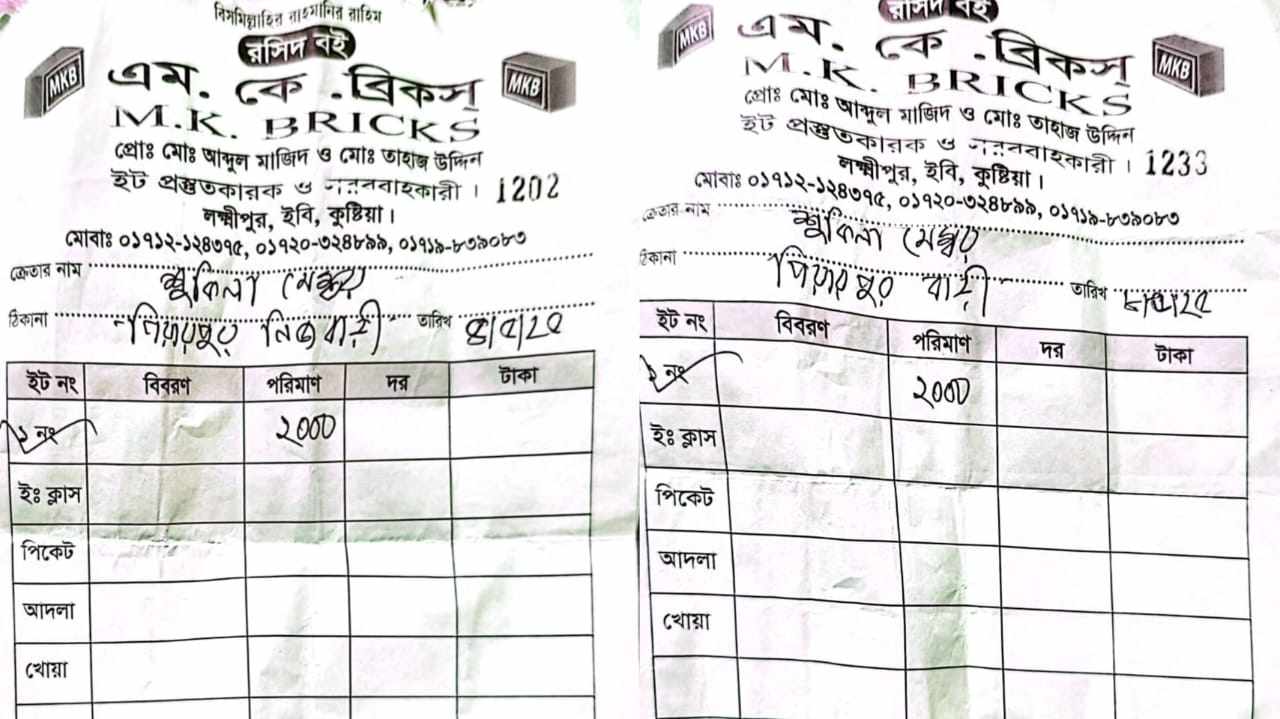 বিসমিল্লাহির রাহমানির রাহিম
রসিদ বই
MKB
এম. কে. ব্রিকস্
MKB
M.K. BRICKS
প্রোঃ মোঃ আব্দুল মাজিদ ও মোঃ তাহাজ উদ্দিন
ইট প্রস্তুতকারক ও সরবরাহকারী। 1202
লক্ষ্মীপুর, ইবি, কুষ্টিয়া।
মোবাঃ ০১৭১২-১২৪৩৭৫, ০১৭২০-৩২৪৮৯৯, ০১৭১৯-৮৩৯০৮৩
ক্রেতার নাম
ঠিকানা পিয়ারপুর নিজ বাড়ী তারিখ
ইট নং বিবরণ পরিমাণ দর টাকা
১ নং ২০০০
ইঃ ক্লাস
পিকেট
আদলা
খোয়া
রসিদ বই
MKB
এম. কে. ব্রিকস্
MKB
M.K. BRICKS
প্রোঃ মোঃ আব্দুল মাজিদ ও মোঃ তাহাজ উদ্দিন
ইট প্রস্তুতকারক ও সরবরাহকারী। 1233
লক্ষ্মীপুর, ইবি, কুষ্টিয়া।
মোবাঃ ০১৭১২-১২৪৩৭৫, ০১৭২০-৩২৪৮৯৯, ০১৭১৯-৮৩৯০৮৩
ক্রেতার নাম
ঠিকানা পিয়ারপুর বাড়ী তারিখ
ইট নং বিবরণ পরিমাণ দর টাকা
নং ২০০০
ইঃ ক্লাস
পিকেট
আদলা
খোয়া